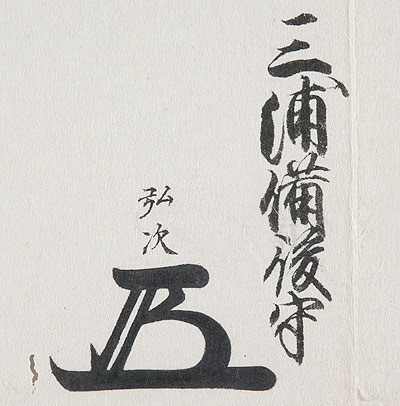 三浦備後守
弘次